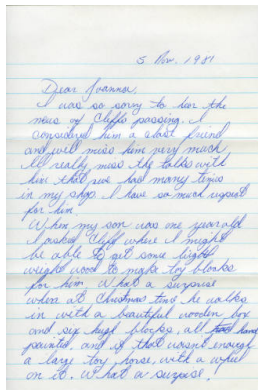 5 Nov. 1981
Dear Joanna,
I was so sorry to hear the
news of Cliffs passing. I
considered him a close friend
and will miss him very much.
I'll really miss the talks with
him that we had many times
in my shop. I have so much respect
for him.
When my son was one year old
I asked Cliff where I might
be able to get some light
weight wood to make toy blocks
for him. What a surprise
when at Christmas time he walks
in with a beautiful wooden box
and six huge blocks, all hand
painted, and if that wasn't enough
a large toy horse, with a wheel
on it. What a surprise.